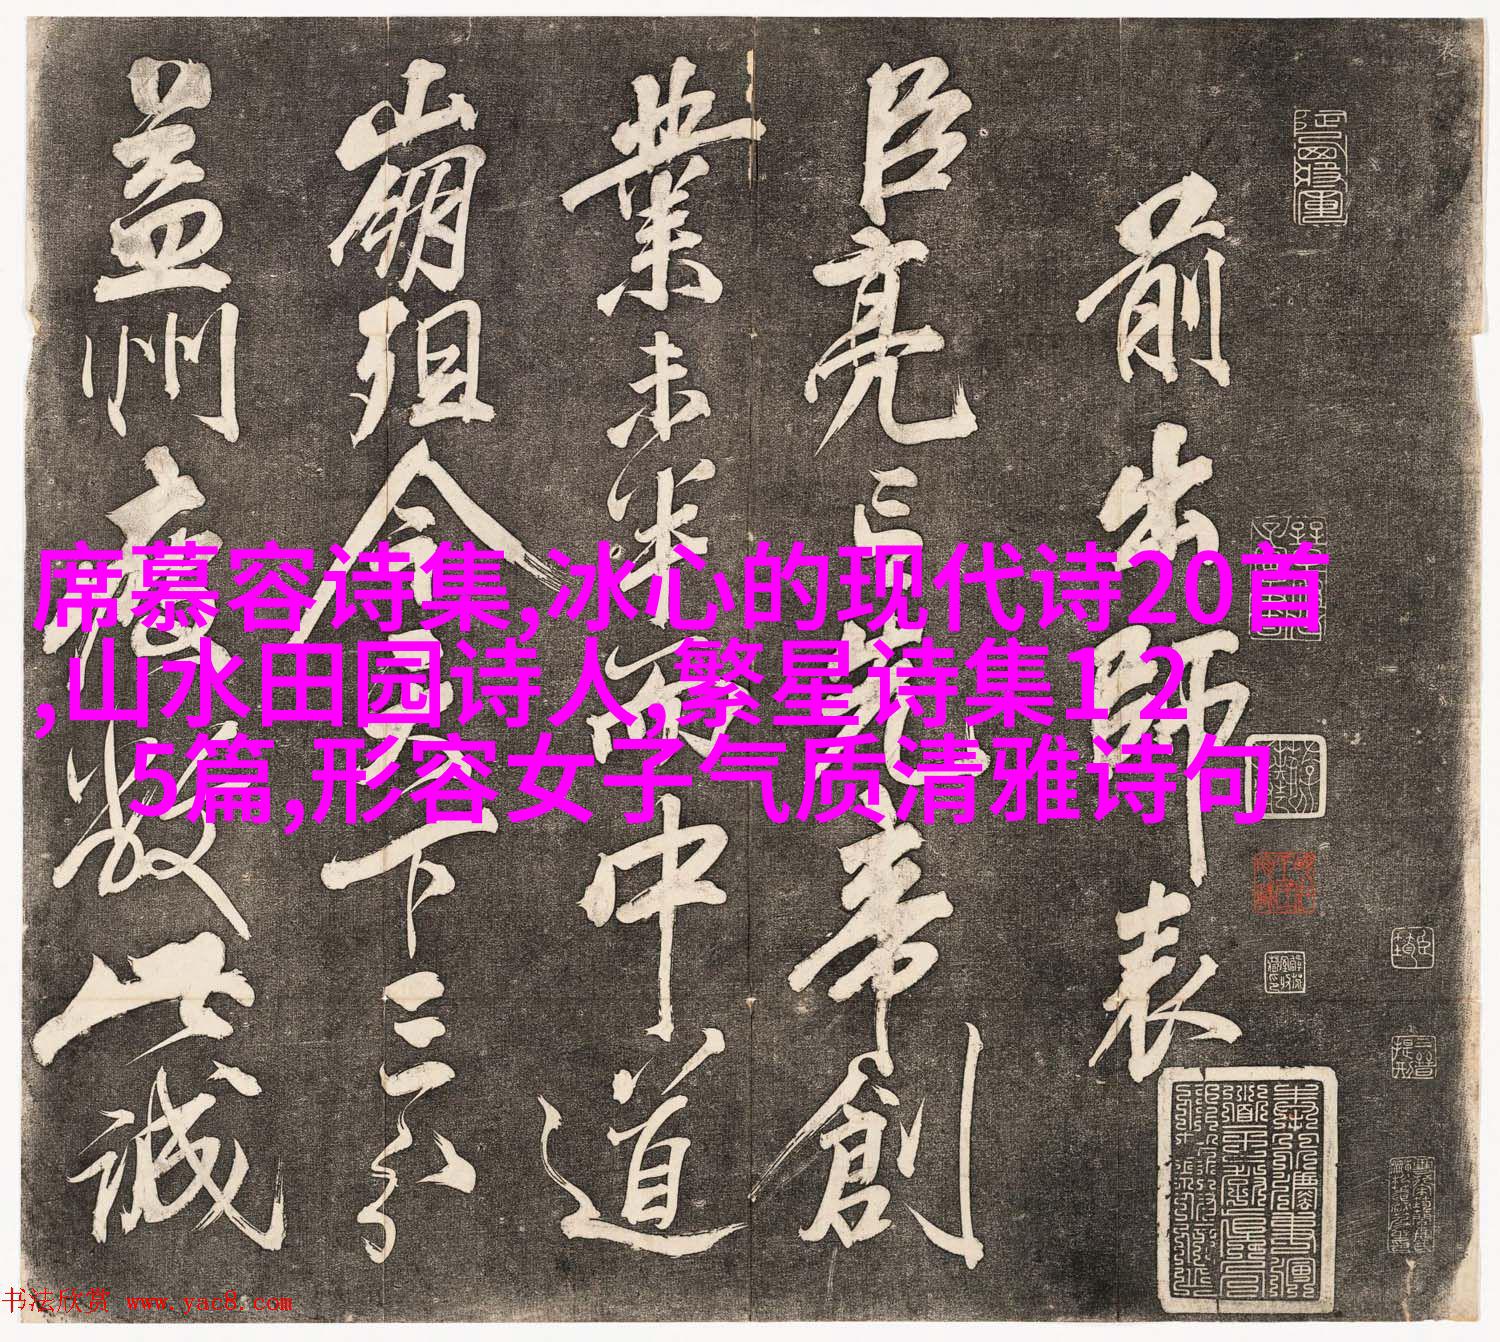 前出師表
臣亮言先帝創
業未半而中道
崩殂今天下三分
益州疲敝此誠
席慕容诗集,冰心的现代诗20首
,山水田园诗人,繁星诗集1 2
5篇,形容女子气质清雅诗句
书法欣赏 www.yac8.com